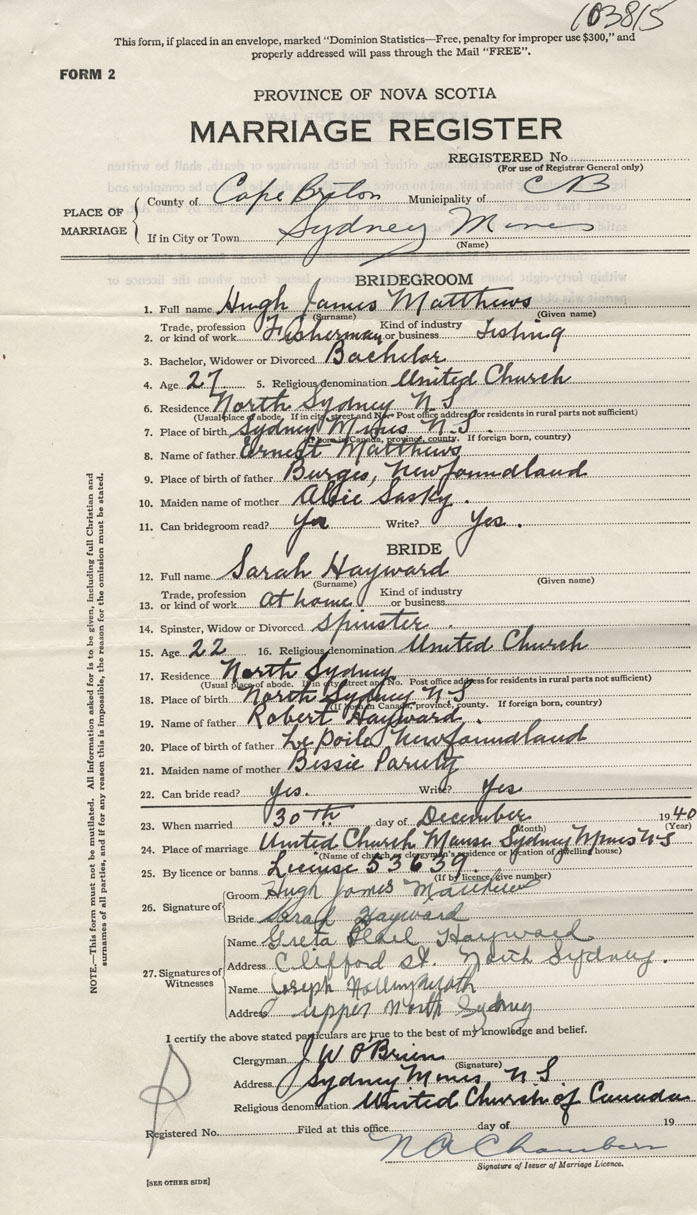 103815
This form, if placed in an envelope, marked "Dominion Statistics—Free, penalty for improper use $300," and
properly addressed will pass through the Mail "FREE".
FORM 2
PROVINCE OF NOVA SCOTIA
MARRIAGE REGISTER
REGISTERED No.
(For use of Registrar General only)
PLACE OF MARRIAGE
County of Cape Breton Municipality of C B
If in City or Town Sydney Mines
(Name)
BRIDEGROOM
1. Full name Hugh James Matthews
(Surname) (Given name)
2. Trade, profession or kind of work Fisherman Kind of industry or business Fishing
3. Bachelor, Widower or Divorced Bachelor
4. Age 27 5. Religious denomination United Church
6. Residence North Sydney N.S
(Usual place of abode. If in city, street and No. Post office address for residents in rural parts not sufficient)
7. Place of birth Sydney Mines N.S.
(If born in Canada, province, county. If foreign born, country)
8. Name of father Ernest Matthews
9. Place of birth of father Burges, Newfoundland
10. Maiden name of mother Alsie Sasky.
11. Can bridegroom read? Yes Write? Yes.
BRIDE
12. Full name Sarah Hayward
(Surname) (Given name)
13. Trade, profession or kind of work At home Kind of industry or business
14. Spinster, Widow or Divorced Spinster.
15. Age 22 16. Religious denomination United Church
17. Residence North Sydney
(Usual place of abode. If in city street and No. Post office address for residents in rural parts not sufficient)
18. Place of birth North Sydney N.S
(If born in Canada, province, county. If foreign born, country)
19. Name of father Robert Hayward.
20. Place of birth of father La Poile Newfoundland
21. Maiden name of mother Bessie
22. Can bride read? Yes. Write? Yes
23. When married 30th day of December 1940
(Month) (Year)
24. Place of marriage United Church Manse Sydney Mines N S
(Name of church, clergyman's residence or location of dwelling house)
25. By licence or banns License 53639.
(If by licence, give number)
26. Signature of
Groom Hugh James Matthews
Bride Sarah Hayward
27. Signatures of Witnesses
Name Greta Pearl Hayward
Address Clifford St. North Sydney.
Name Joseph
Address upper North Sydney
I certify the above stated particulars are true to the best of my knowledge and belief.
Clergyman J W O'Brien
(Signature)
Address Sydney Mines, N S
Religious denomination United Church of Canada
Registered No. Filed at this office day of 19
N A Chambers
Signature of Issuer of Marriage Licence.
[SEE OTHER SIDE]
NOTE.—This form must not be mutilated. All information asked for is to be given, including full Christian and
surnames of all parties, and if for any reason this is impossible, the reason for the omission must be stated.